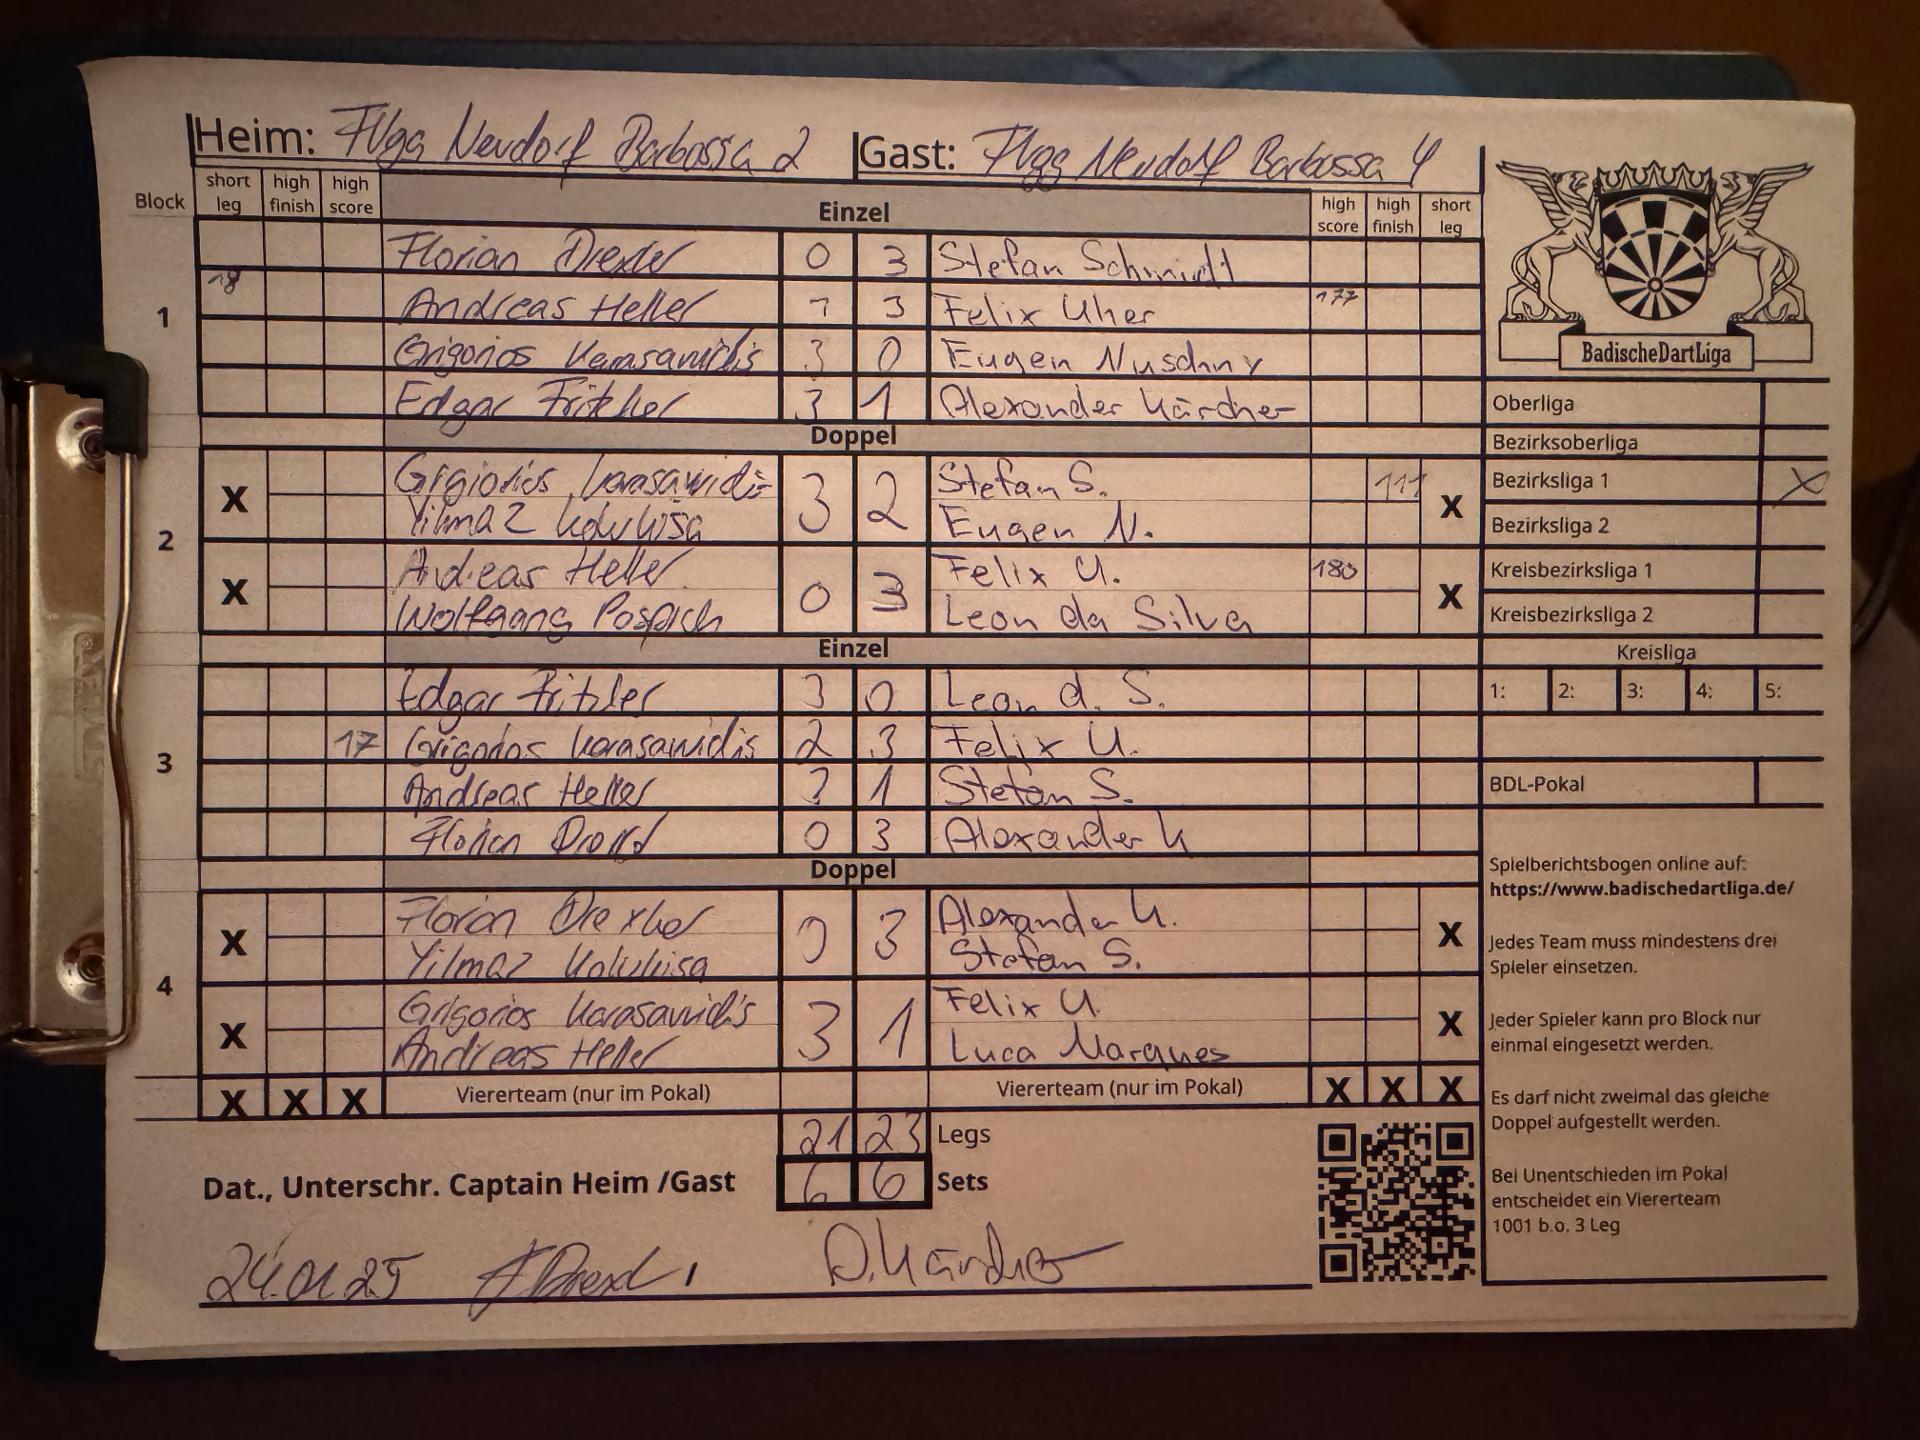 Heim: Flgg Neudorf Barbossa 2 Gast: Flgg Neudorf Barbossa 4
Block short leg high finish high score Einzel high score high finish short leg
Florian Drexler 0 3 Stefan Schmidt
1 18 Andreas Heller 1 3 Felix Uher 177
Grigorios Karasawidis 3 0 Eugen Nuschny
Edgar Fritzler 3 1 Alexander Kärcher
Doppel
X Grigiorios Karasawidis 3 2 Stefan S. 111 X
2 Yilmaz Kolukisa Eugen N.
X Andreas Heller 0 3 Felix U. 180 X
Wolfgang Leon da Silva
Einzel
Edgar Fritzler 3 0 Leon d. S.
3 17 Grigorios Karasawidis 2 3 Felix U.
Andreas Heller 3 1 Stefan S.
Florian 0 3 Alexander K
Doppel
X Florian Drexler 0 3 Alexander K. X
Yilmaz Kolukisa Stefan S.
4
X Grigorios Karasawidis 3 1 Felix U. X
Andreas Heller Luca Marques
X X X Viererteam (nur im Pokal) Viererteam (nur im Pokal) X X X
21 23 Legs
Dat., Unterschr. Captain Heim /Gast 6 6 Sets
24.01.25 A. Kärcher
BadischeDartLiga
Oberliga
Bezirksoberliga
Bezirksliga 1 X
Bezirksliga 2
Kreisbezirksliga 1
Kreisbezirksliga 2
Kreisliga
1: 2: 3: 4: 5:
BDL-Pokal
Spielberichtsbogen online auf:
https://www.badischedartliga.de/
Jedes Team muss mindestens drei
Spieler einsetzen.
Jeder Spieler kann pro Block nur
einmal eingesetzt werden.
Es darf nicht zweimal das gleiche
Doppel aufgestellt werden.
Bei Unentschieden im Pokal
entscheidet ein Viererteam
1001 b.o. 3 Leg